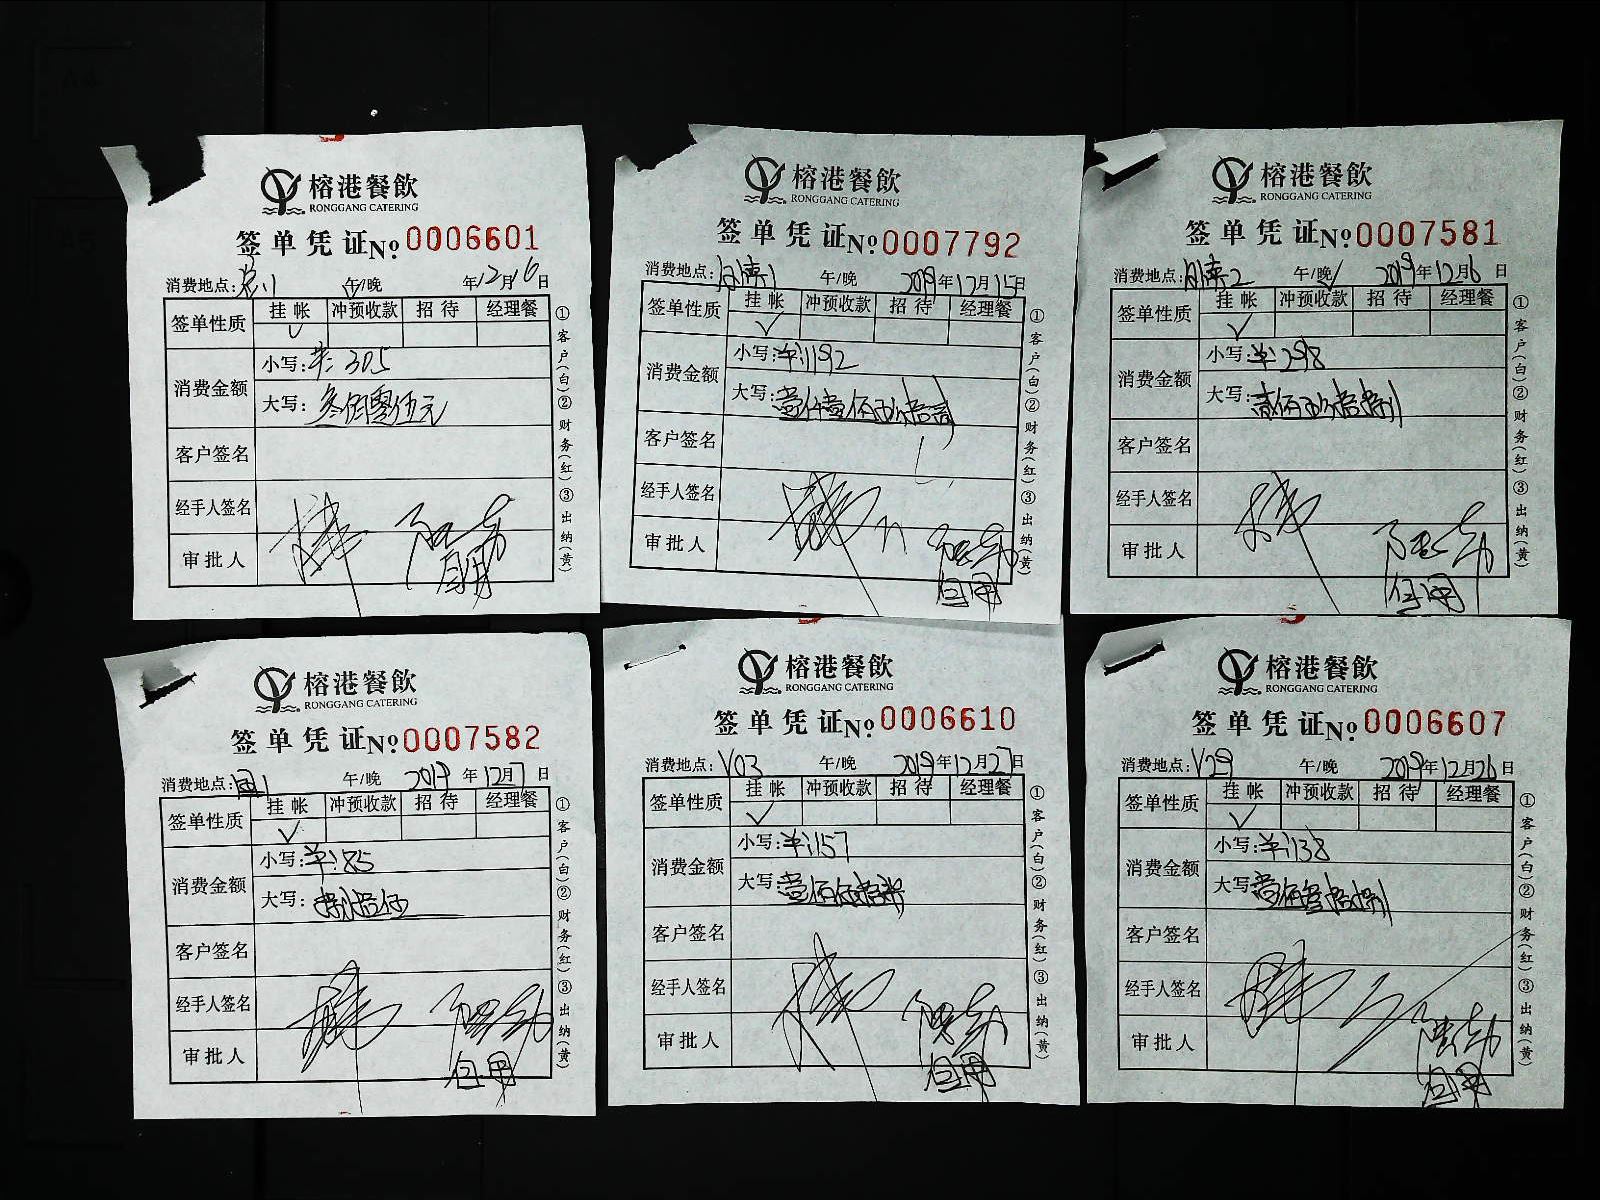 榕港餐飲
RONGGANG CATERING
签单凭证№0006601
消费地点: 午/晚 年12月16日
签单性质 挂帐 冲预收款 招待 经理餐
消费金额 小写:¥:305
大写:叁佰零伍元
客户签名
经手人签名
审批人
自用
①客户(白)②财务(红)③出纳(黄)
榕港餐飲
RONGGANG CATERING
签单凭证№0007792
消费地点: 午/晚 2019年12月15日
签单性质 挂帐 冲预收款 招待 经理餐
消费金额 小写:¥:1192
大写:壹仟壹佰玖拾贰
客户签名
经手人签名
审批人
自用
①客户(白)②财务(红)③出纳(黄)
榕港餐飲
RONGGANG CATERING
签单凭证№0007581
消费地点: 午/晚 2019年12月6日
签单性质 挂帐 冲预收款 招待 经理餐
消费金额 小写:¥:298
大写:贰佰玖拾捌
客户签名
经手人签名
审批人
自用
①客户(白)②财务(红)③出纳(黄)
榕港餐飲
RONGGANG CATERING
签单凭证№0007582
消费地点: 午/晚 2019年12月7日
签单性质 挂帐 冲预收款 招待 经理餐
消费金额 小写:¥:85
大写:捌拾伍
客户签名
经手人签名
审批人
自用
①客户(白)②财务(红)③出纳(黄)
榕港餐飲
RONGGANG CATERING
签单凭证№0006610
消费地点:V03 午/晚 2019年12月27日
签单性质 挂帐 冲预收款 招待 经理餐
消费金额 小写:¥:157
大写:壹佰伍拾柒
客户签名
经手人签名
审批人
自用
①客户(白)②财务(红)③出纳(黄)
榕港餐飲
RONGGANG CATERING
签单凭证№0006607
消费地点:V29 午/晚 2019年12月26日
签单性质 挂帐 冲预收款 招待 经理餐
消费金额 小写:¥:138
大写:壹佰叁拾捌
客户签名
经手人签名
审批人
自用
①客户(白)②财务(红)③出纳(黄)